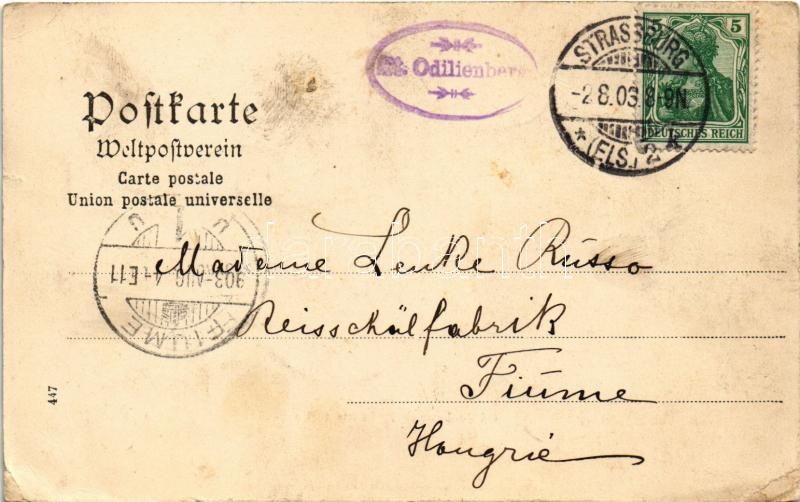 St. Odilienberg
STRASSBURG
-2.8.03.8-9N.
* (ELS.) 2 k
5 5
DEUTSCHES REICH
Postkarte
Weltpostverein
Carte postale
Union postale universelle
903-AUG. 4-E11
FIUME
Madame Lenke Russo
Reisschälfabrik
Fiume
Hongrie
447